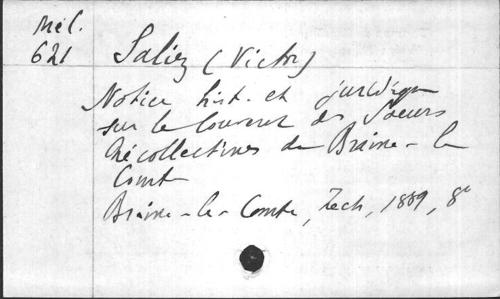 Mél.
621
Saliez (Victor)
Notice hist. et juridique
sur le Couvent des Soeurs
Récollectines de Braine-le
Comte
Braine-le-Comte, Zech, 1889, 8°